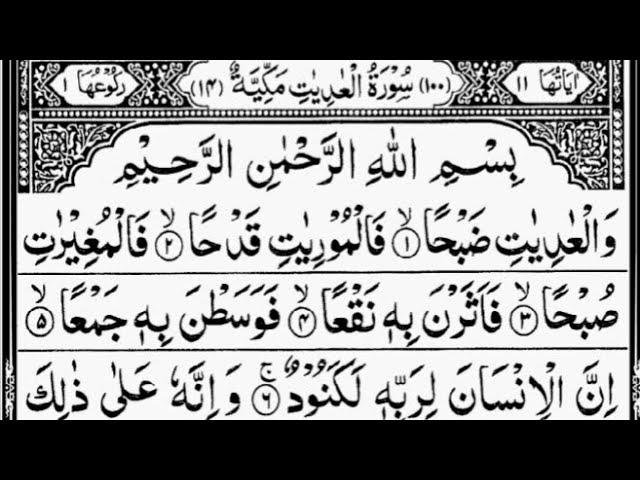 اٰیَاتُهَا ۱۱ (۱۰۰) سُوْرَةُ الْعٰدِیٰتِ مَکِّیَّةٌ (۱۴) رُکُوْعُهَا ۱
بِسْمِ اللهِ الرَّحْمٰنِ الرَّحِیْمِ
وَالْعٰدِیٰتِ ضَبْحًا ۙ﴿۱﴾ فَالْمُوْرِیٰتِ قَدْحًا ۙ﴿۲﴾ فَالْمُغِیْرٰتِ
صُبْحًا ۙ﴿۳﴾ فَاَثَرْنَ بِهٖ نَقْعًا ۙ﴿۴﴾ فَوَسَطْنَ بِهٖ جَمْعًا ۙ﴿۵﴾
اِنَّ الْاِنْسَانَ لِرَبِّهٖ لَکَنُوْدٌ ۚ﴿۶﴾ وَاِنَّهٗ عَلٰی ذٰلِكَ